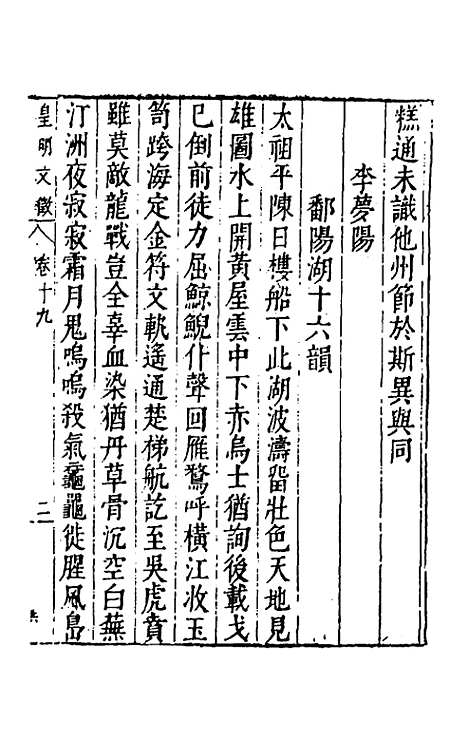 糕通未識他州節於斯異與同
李夢陽
鄱陽湖十六韻
太祖平陳日樓船下此湖波濤畱壯色天地見
雄圖水上開黃屋雲中下赤烏士猶詢後載戈
已倒前徒力屈鯨鯢仆聲回雁鶩呼橫江收玉
笥跨海定金符文軌遙通楚梯航訖至吳虎賁
雖莫敵龍戰豈全辜血染猶丹草骨沉空白蕪
汀洲夜寂寂霜月鬼嗚嗚殺氣黿鼉徙腥風島
皇明文徵 卷十九 二